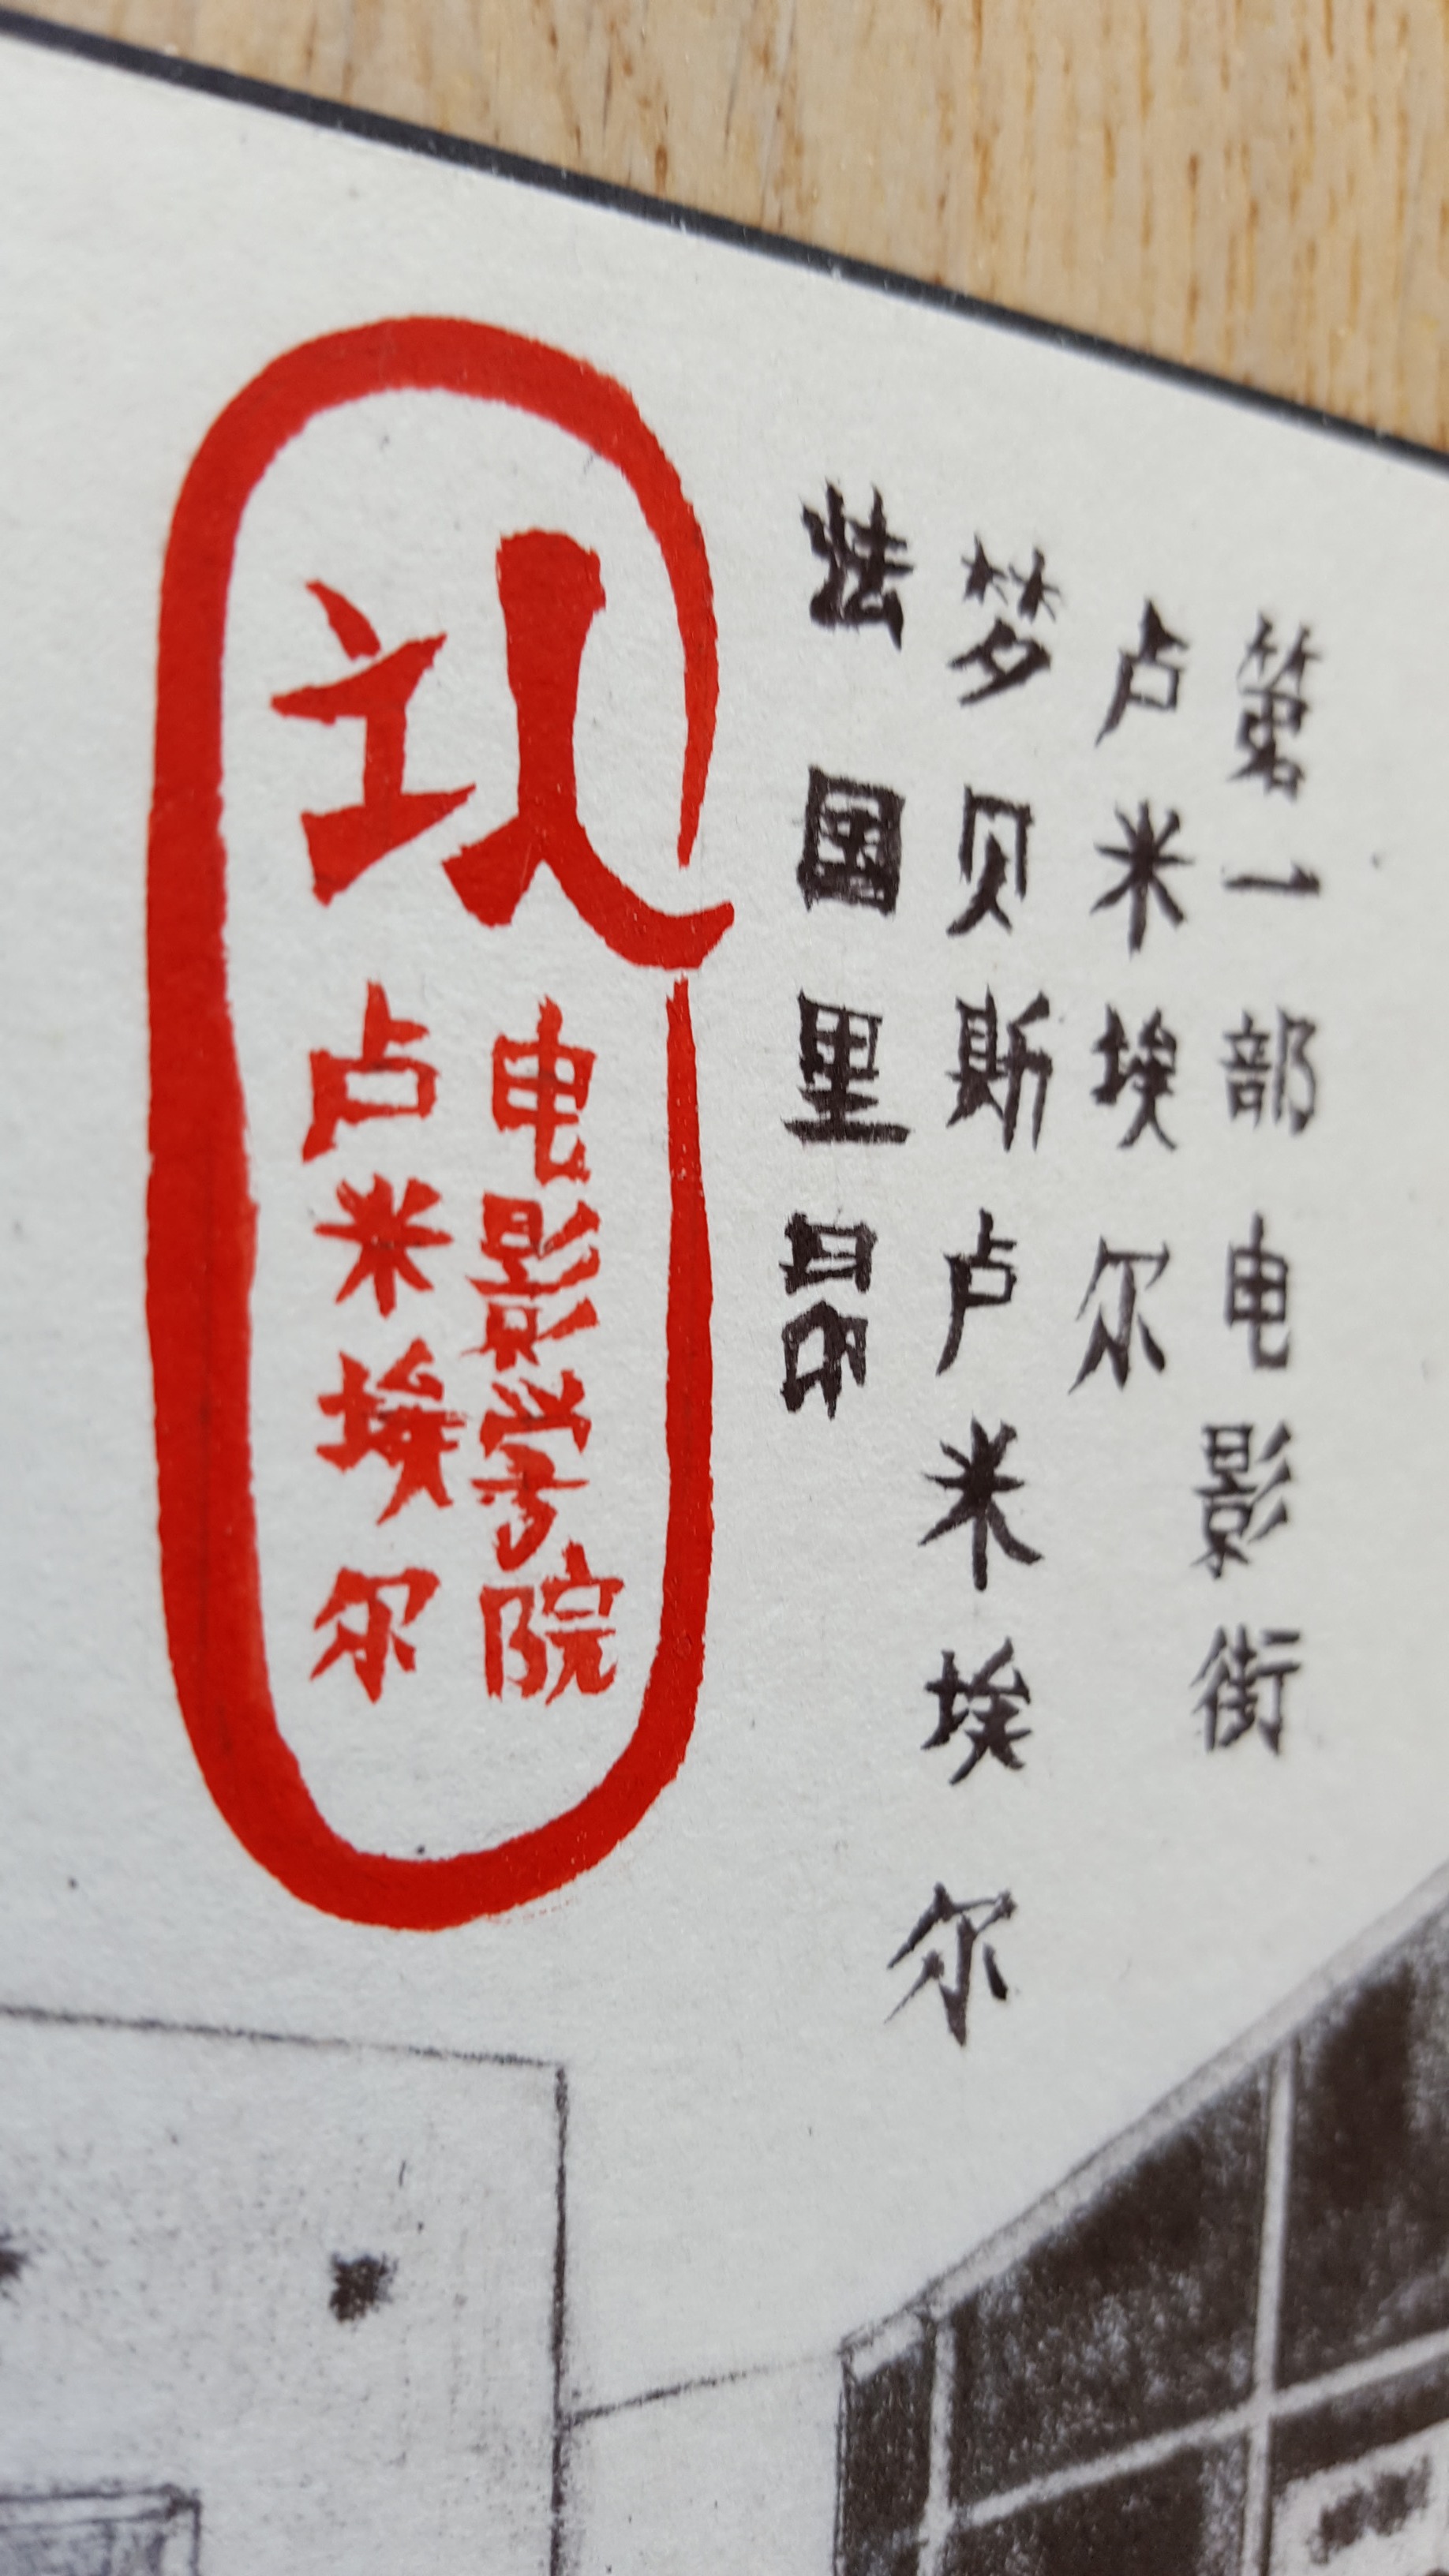 第一部电影街
卢米埃尔
梦贝斯卢米埃尔
法国里昂
电影学院
卢米埃尔